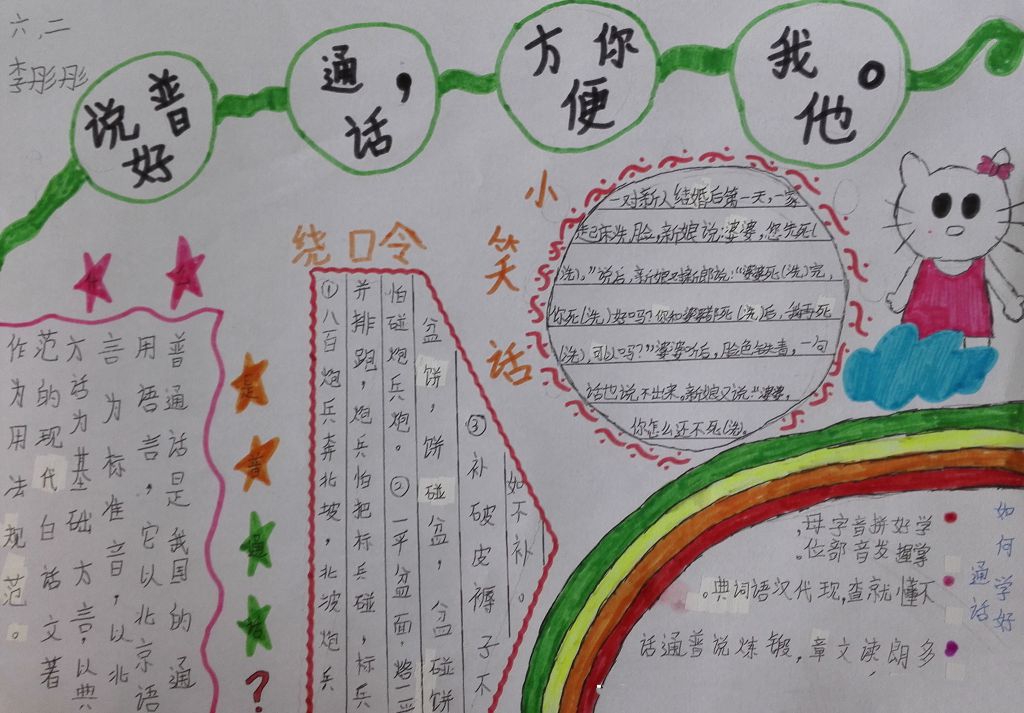 六.二
李彤彤
说好普
通话，
方便你
我他。
是普通话？
普通话是我国的通
用语言，它以北京语
言为标准音，以北
方话为基础方言，以典
范的现代白话文著
作为用法规范。
绕口令
①八百炮兵奔北坡，北坡炮兵
并排跑，炮兵怕把标兵碰，标兵
怕碰炮兵炮。②一平盆面，烙一平
盆饼，饼碰盆，盆碰饼
③补破皮褥子不
如不补。
小笑话
一对新人结婚后第一天，一家
起床洗脸，新娘说：“婆婆，您先死(
洗)。”说后，新娘又对新郎说：“婆婆死(洗)完，
你死(洗)好吗？你和婆婆都死(洗)后，我再死
(洗)，可以吗？”婆婆听后，脸色铁青，一句
话也说不出来。新娘又说：“婆婆，
你怎么还不死(洗)。
如何学好
通话
学好拼音字母，
掌握发音部位。
不懂就查，现代汉语词典。
多朗读文章，锻炼说普通话